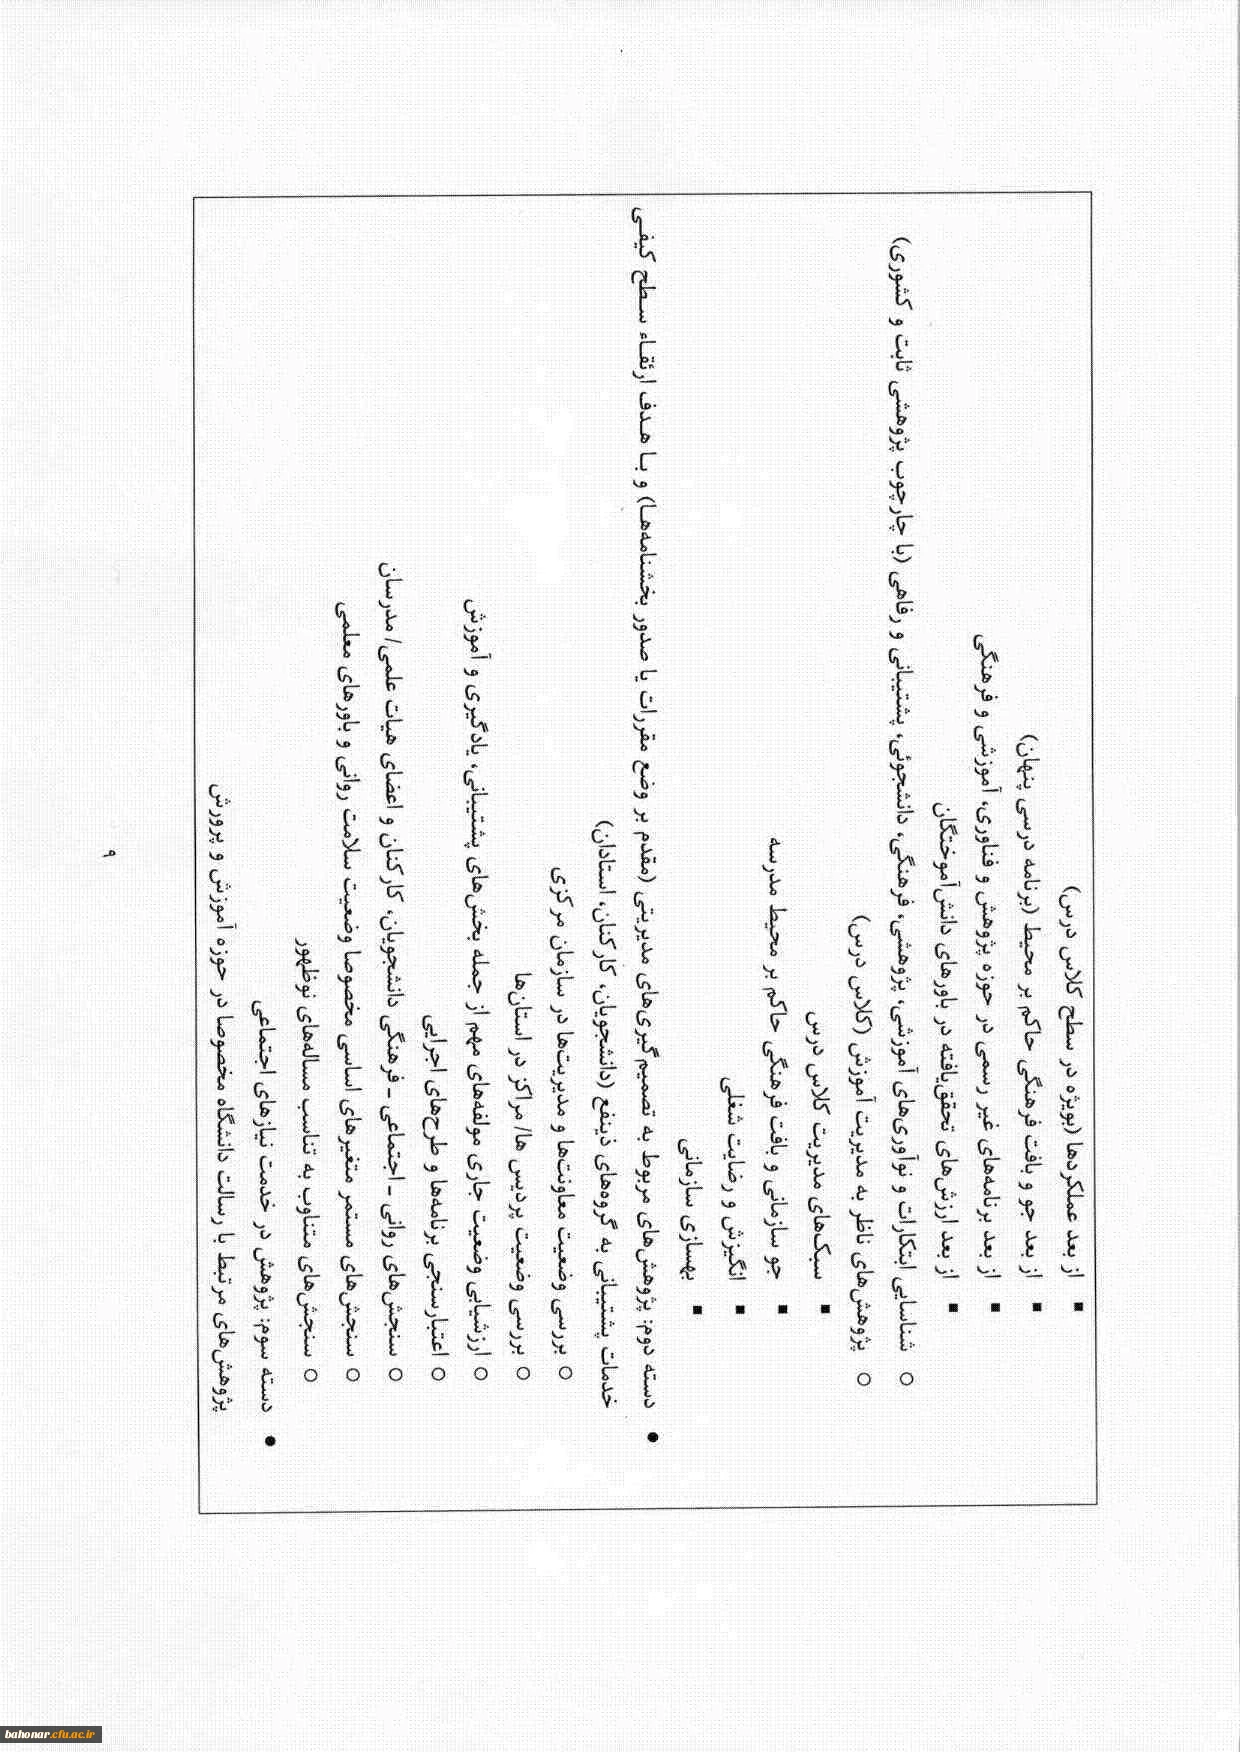 ▪ از بعد عملکردها (بویژه در سطح کلاس درس)
▪ از بعد جو و بافت فرهنگی حاکم بر محیط (برنامه درسی پنهان)
▪ از بعد برنامه‌های غیر رسمی در حوزه پژوهش و فناوری، آموزشی و فرهنگی
▪ از بعد ارزش‌های تحقق‌یافته در باورهای دانش‌آموختگان
○ شناسایی ابتکارات و نوآوری‌های آموزشی، پژوهشی، فرهنگی، دانشجوئی، پشتیبانی و رفاهی (با چارچوب پژوهشی ثابت و کشوری)
○ پژوهش‌های ناظر به مدیریت آموزش (کلاس درس)
▪ سبک‌های مدیریت کلاس درس
▪ جو سازمانی و بافت فرهنگی حاکم بر محیط مدرسه
▪ انگیزش و رضایت شغلی
▪ بهسازی سازمانی
● دسته دوم: پژوهش‌های مربوط به تصمیم‌گیری‌های مدیریتی (مقدم بر وضع مقررات یا صدور بخشنامه‌ها) و با هدف ارتقاء سطح کیفی
خدمات پشتیبانی به گروه‌های ذینفع (دانشجویان، کارکنان، استادان)
○ بررسی وضعیت معاونت‌ها و مدیریت‌ها در سازمان مرکزی
○ بررسی وضعیت پردیس ها/ مراکز در استان‌ها
○ ارزشیابی وضعیت جاری مولفه‌های مهم از جمله بخش‌های پشتیبانی، یادگیری و آموزش
○ اعتبارسنجی برنامه‌ها و طرح‌های اجرایی
○ سنجش‌های روانی ـ اجتماعی ـ فرهنگی دانشجویان، کارکنان و اعضای هیات علمی/ مدرسان
○ سنجش‌های مستمر متغیرهای اساسی مخصوصا وضعیت سلامت روانی و باورهای معلمی
○ سنجش‌های متناوب به تناسب مساله‌های نوظهور
● دسته سوم: پژوهش در خدمت نیازهای اجتماعی
پژوهش‌های مرتبط با رسالت دانشگاه مخصوصا در حوزه آموزش و پرورش
۹
bahonar.cfu.ac.ir